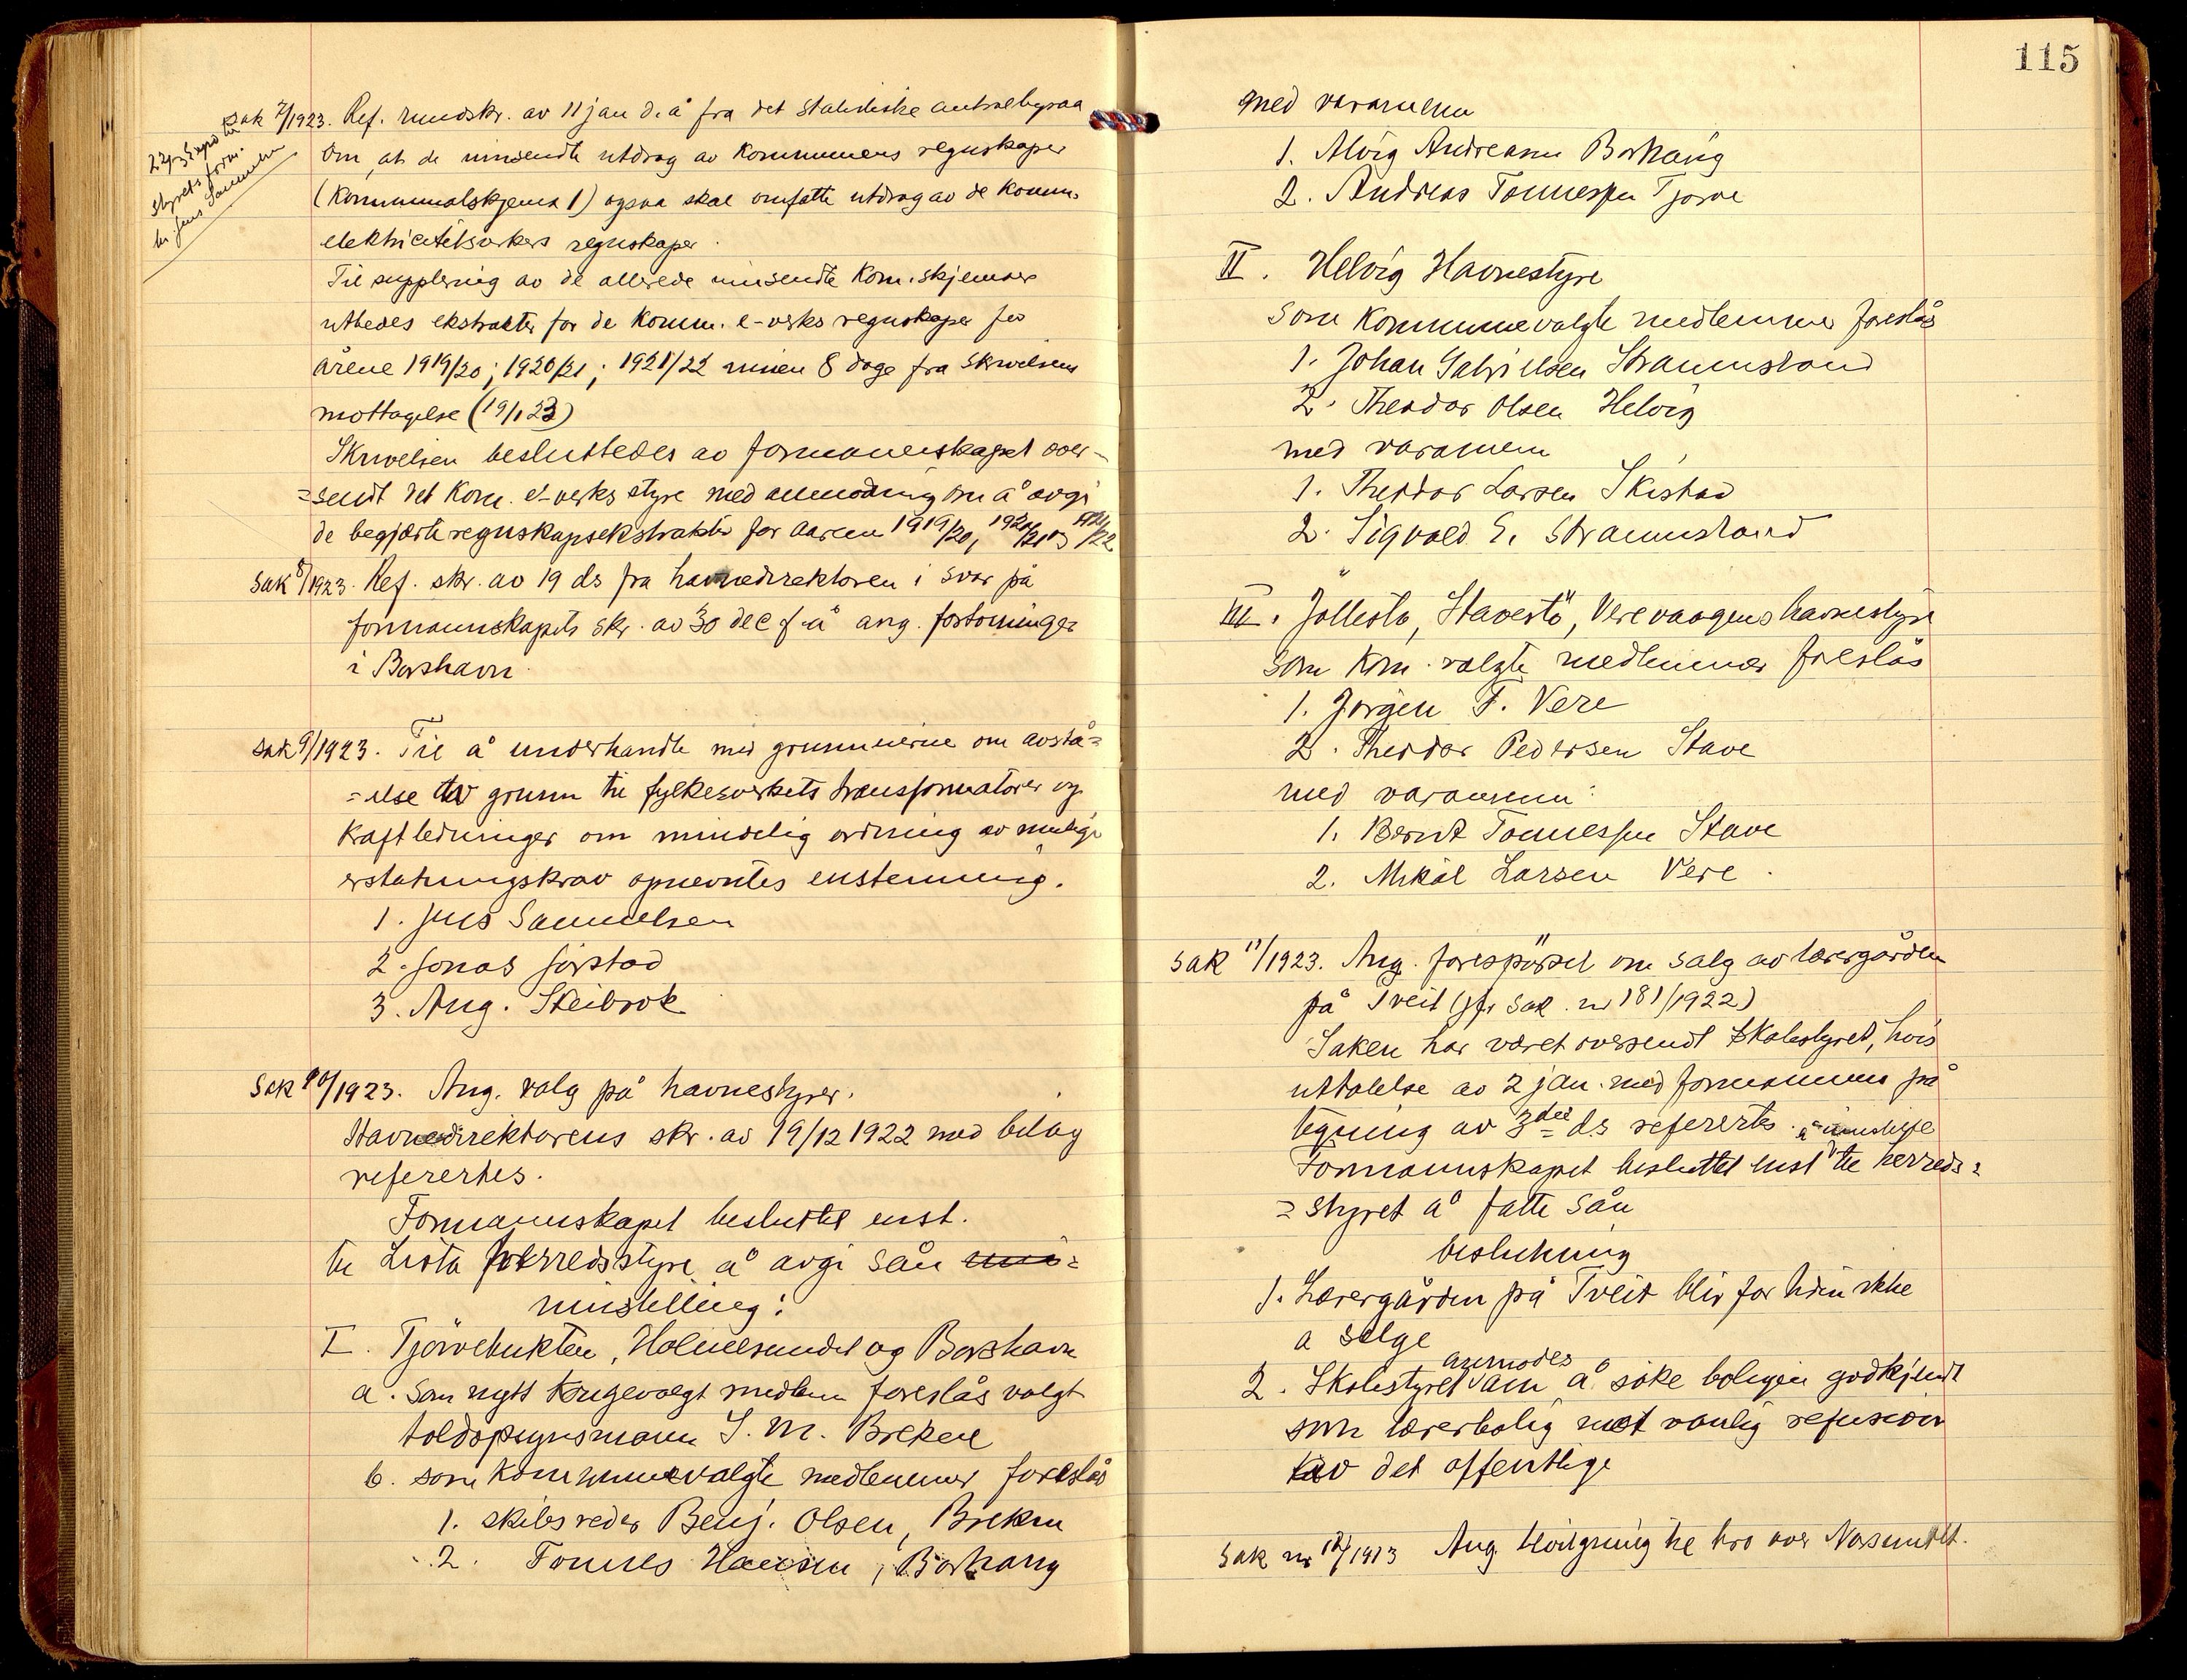 Sak 7/1923. Ref. rundskr. av 11 jan d. å fra det statistiske centralbyraa
om, at de innsendte utdrag av kommunens regnskaper
(Kommunalskjema 1) ogsaa skal omfatte utdrag av de komm.
elektricitetsverkers regnskaper.
Til supplering av de allerede innsendte kom. skjemaer
utbedes ekstrakter for de komm. e-verks regnskaper for
årene 1919/20; 1920/21; 1921/22 innen 8 dage fra skrivelsens
mottagelse (19/1 23)
Skrivelsen besluttedes av formannskapet over-
=sendt det kom. e-verks styre med anmodning om å avgi
de begjærte regnskapsekstrakter for aarene 1919/20, 1920/21 og 1921/22
22/3 Expd til
styrets form.
hr. Jens Samuelsen
Sak 8/1923. Ref. skr. av 19 ds fra havnedirektøren i svar på
formannskapets skr. av 30 dec f.å ang. fortøininger
i Borshavn.
Sak 9/1923. Til å underhandle med grunneierne om avstå=
=else av grunn til fylkesverkets transformatorer og
kraftledninger om mindelig ordning av mulige
erstatningskrav opnevntes enstemmig.
1. Jens Samuelsen
2. Jonas Jørstad
3. Aug. Skeibrok
Sak 10/1923. Ang. valg på havnestyrer.
Havnedirektørens skr. av 19/12 1922 med bilag
refererte​s.
Formannskapet besluttet enst.
til Lista herredsstyre å avgi sån
innstilling:
I. Tjörvebukten, Holmesundet og Borshavn
a. Som nytt kongevalgt medlem foreslås valgt
toldopsynsmann S. M. Brekne
b. som kommunevalgte medlemmer foreslås
1. skibsreder Benj. Olsen, Brekne
2. Tønnes Hansen, Borhaug
115
med varamenn
1. Alvig Andreassen Borhaug
2. Andreas Tønnessen Tjørve
II. Helvig Havnestyre
som kommunevalgte medlemmer foreslås
1. Johan Gabrielsen Straumsland
2. Theodor Olsen Helvig
med varamenn
1. Theodor Larsen Skistad
2. Sigvald E. Straumsland
III. Jöllestø, Stavestö, Verevaagens havnestyre
som kom. valgte medlemmer foreslås
1. Jørgen F. Vere
2. Theodor Pedersen Stave
med varamenn:
1. Bernt Tønnessen Stave
2. Mikal Larsen Vere.
Sak 11/1923. Ang. forespörsel om salg av lærergården
på Tveit (jfr sak nr 181/1922)
Saken har været oversendt skolestyret, hvis
uttalelse av 2 jan. med formannens på
tegning av 3die ds refererte​s.
Formannskapet besluttet enst å innstille til herreds=
=styret å fatte sån
beslutning
1. Lærergården på Tveit blir for tiden ikke
a selge
2. Skolestyret anmodes om å søke boligen godkjendt
som lærerbolig mot vanlig refusion
av det offentlige
Sak nr 12/1923 Ang. bro over